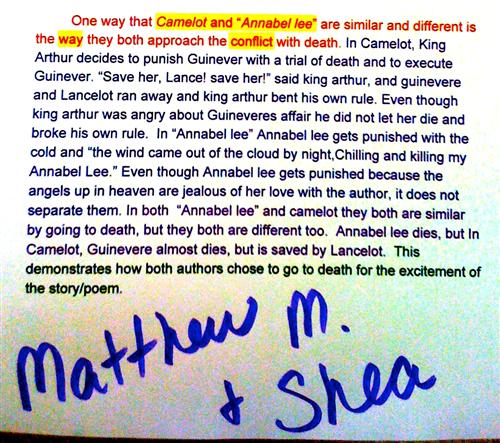 One way that Camelot and "Annabel lee" are similar and different is
the way they both approach the conflict with death. In Camelot, King
Arthur decides to punish Guinever with a trial of death and to execute
Guinever. "Save her, Lance! save her!" said king arthur, and guinevere
and Lancelot ran away and king arthur bent his own rule. Even though
king arthur was angry about Guineveres affair he did not let her die and
broke his own rule. In "Annabel lee" Annabel lee gets punished with the
cold and "the wind came out of the cloud by night,Chilling and killing my
Annabel Lee." Even though Annabel lee gets punished because the
angels up in heaven are jealous of her love with the author, it does not
separate them. In both "Annabel lee" and camelot they both are similar
by going to death, but they both are different too. Annabel lee dies, but In
Camelot, Guinevere almost dies, but is saved by Lancelot. This
demonstrates how both authors chose to go to death for the excitement of
the story/poem.
Matthew M.
+ Shea